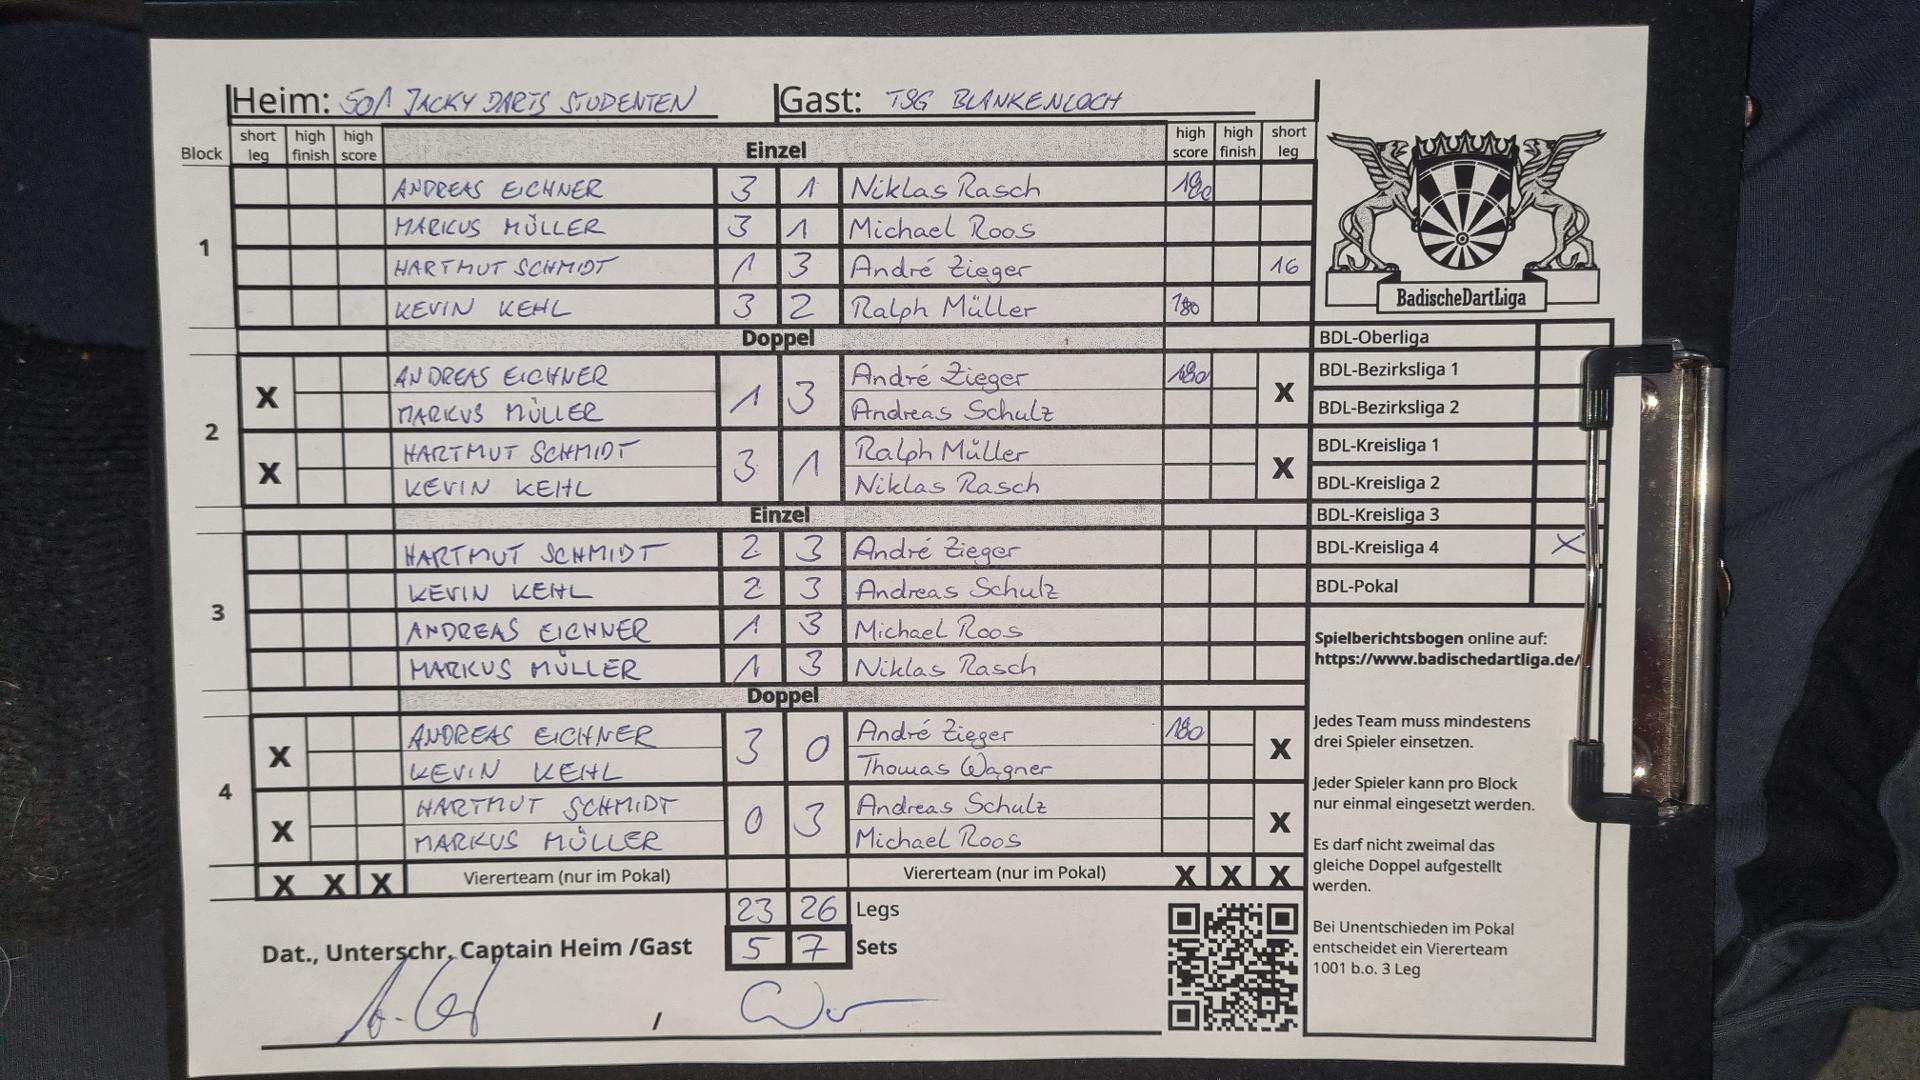 Heim: 501 JACKY DARTS STUDENTEN Gast: TSG BLANKENLOCH
Block short leg high finish high score Einzel high score high finish short leg
1
ANDREAS EICHNER 3 1 Niklas Rasch 180
MARKUS MÜLLER 3 1 Michael Roos
HARTMUT SCHMIDT 1 3 André Zieger 16
KEVIN KEHL 3 2 Ralph Müller 180
Doppel
2
X ANDREAS EICHNER 1 3 André Zieger 180 X
MARKUS MÜLLER Andreas Schulz
X HARTMUT SCHMIDT 3 1 Ralph Müller X
KEVIN KEHL Niklas Rasch
Einzel
3
HARTMUT SCHMIDT 2 3 André Zieger
KEVIN KEHL 2 3 Andreas Schulz
ANDREAS EICHNER 1 3 Michael Roos
MARKUS MÜLLER 1 3 Niklas Rasch
Doppel
4
X ANDREAS EICHNER 3 0 André Zieger 180 X
KEVIN KEHL Thomas Wagner
X HARTMUT SCHMIDT 0 3 Andreas Schulz X
MARKUS MÜLLER Michael Roos
X X X Viererteam (nur im Pokal) Viererteam (nur im Pokal) X X X
23 26 Legs
Dat., Unterschr. Captain Heim /Gast 5 7 Sets
/
BadischeDartLiga
BDL-Oberliga
BDL-Bezirksliga 1
BDL-Bezirksliga 2
BDL-Kreisliga 1
BDL-Kreisliga 2
BDL-Kreisliga 3
BDL-Kreisliga 4 X
BDL-Pokal
Spielberichtsbogen online auf:
https://www.badischedartliga.de/
Jedes Team muss mindestens
drei Spieler einsetzen.
Jeder Spieler kann pro Block
nur einmal eingesetzt werden.
Es darf nicht zweimal das
gleiche Doppel aufgestellt
werden.
Bei Unentschieden im Pokal
entscheidet ein Viererteam
1001 b.o. 3 Leg